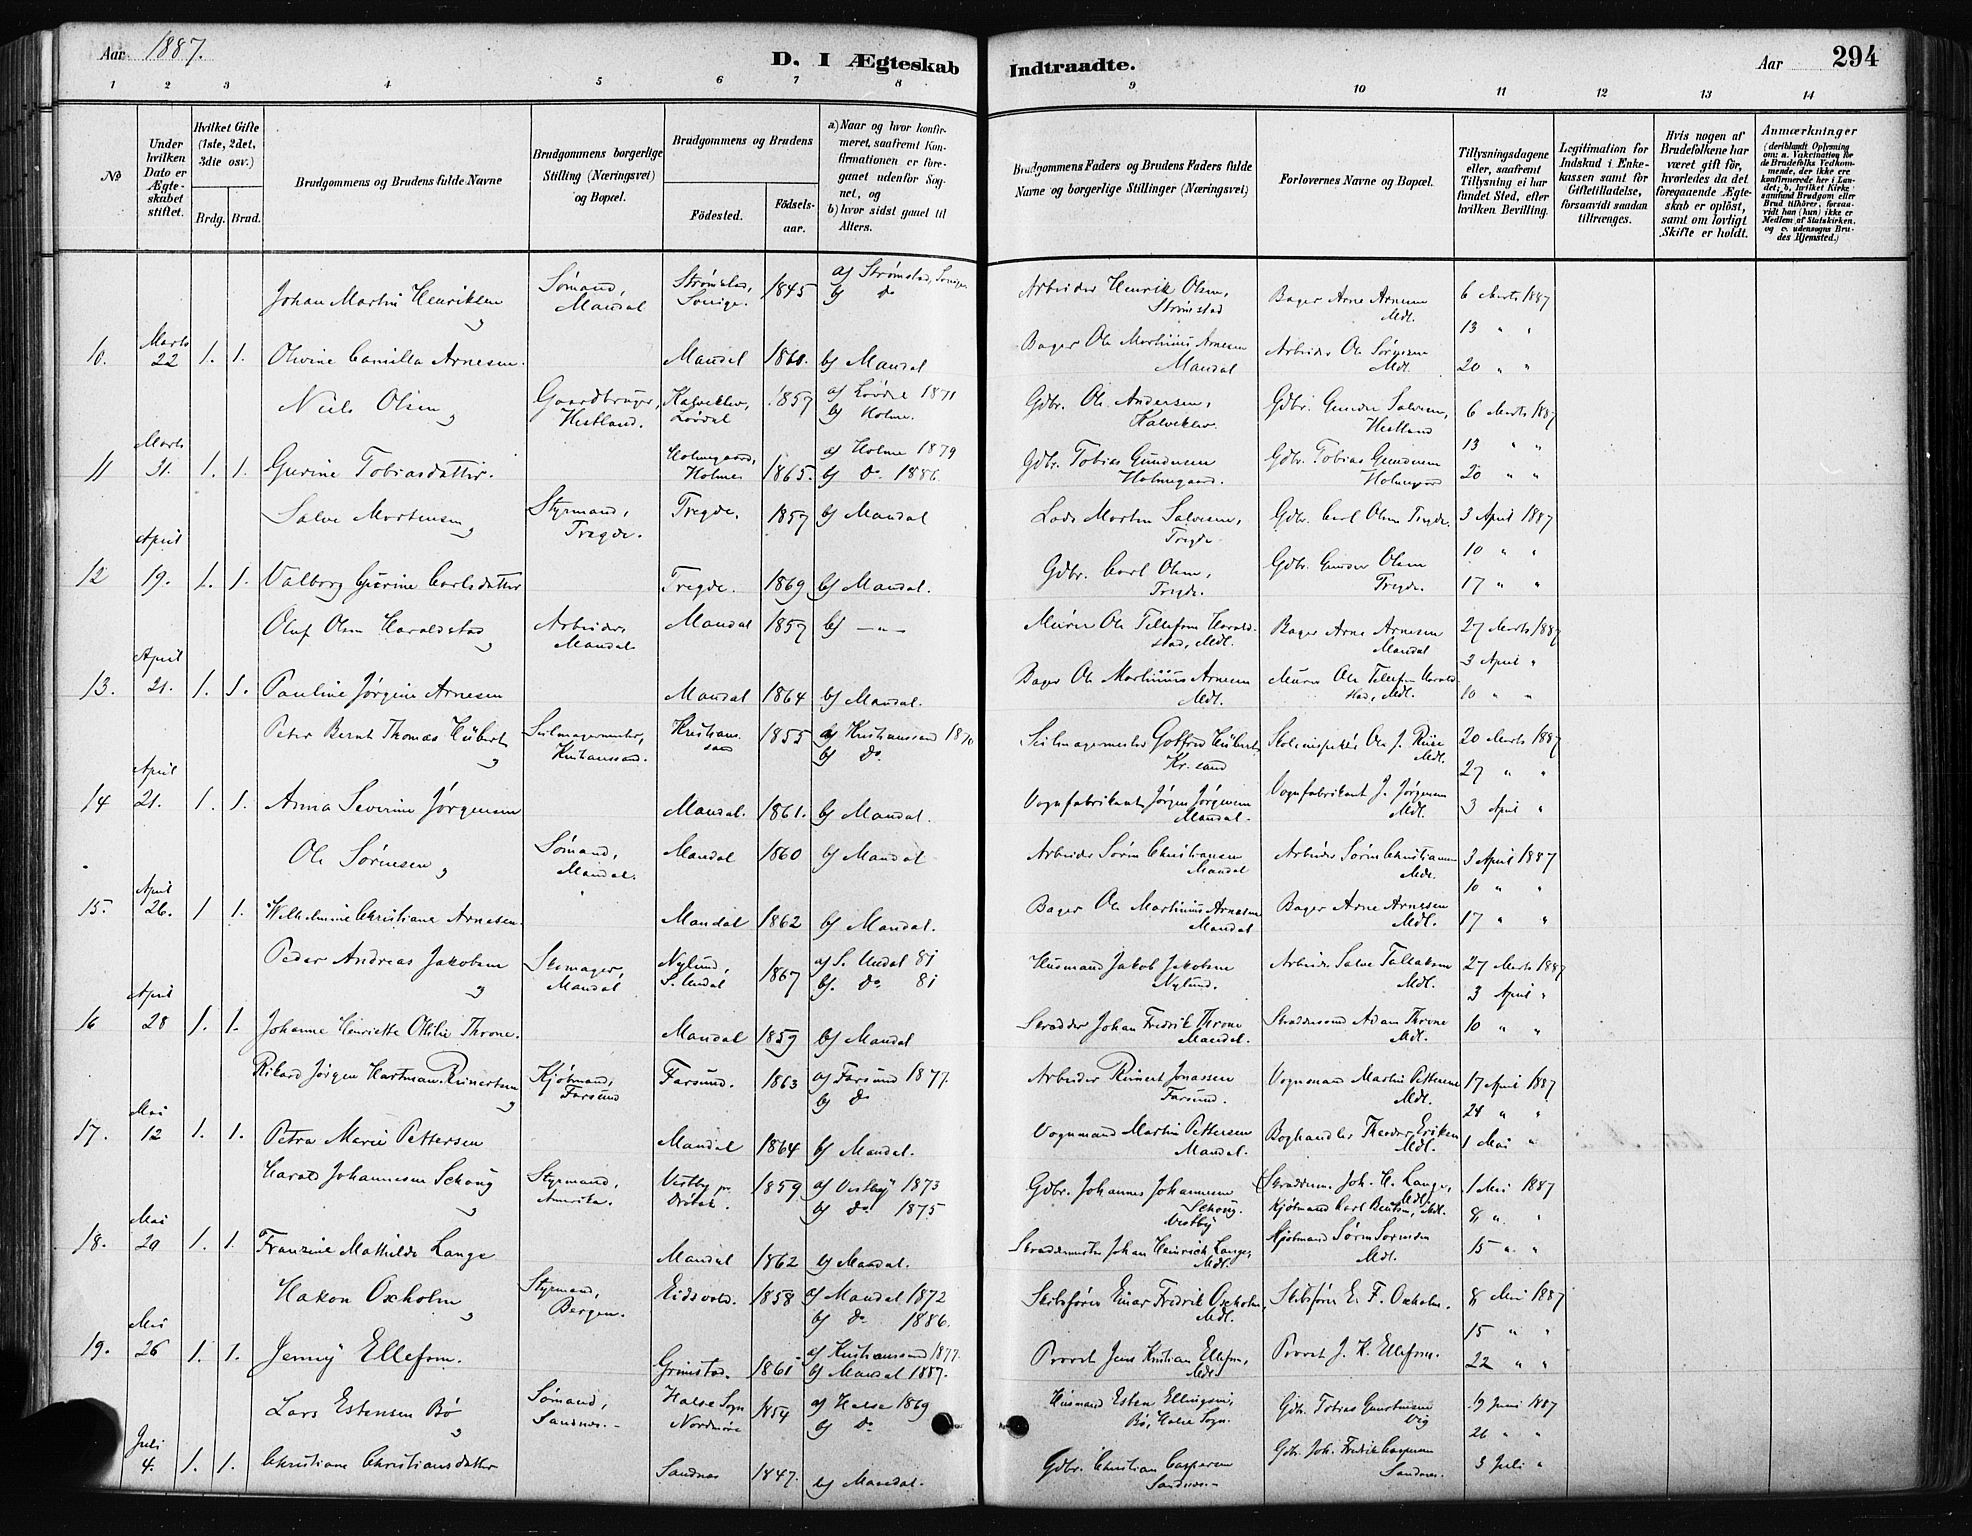 Aar 1887.
D. I Ægteskab Indtraadte.
Aar 294
1 2 3 4 5 6 7 8 9 10 11 12 13 14
No
Under hvilken Dato er Ægteskabet stiftet.
Hvilket Gifte (1ste, 2det, 3die osv.)
Brdg. Brud.
Brudgommens og Brudens fulde Navne
Brudgommens borgerlige Stilling (Næringsvei) og Bopæl.
Brudgommens og Brudens
Födested.
Födsels-aar.
a) Naar og hvor konfirmeret, saafremt Konfirmationen er foregaaet udenfor Sognet, og
b) hvor sidst gaaet til Alters.
Brudgommens Faders og Brudens Faders fulde Navne og borgerlige Stillinger (Næringsvei)
Forlovernes Navne og Bopæl.
Tillysningsdagene eller, saafremt Tillysning ei har fundet Sted, efter hvilken Bevilling.
Legitimation for Indskud i Enkekassen samt for Giftetilladelse, forsaavidt saadan tiltrænges.
Hvis nogen af Brudefolkene har været gift för, hvorledes da det foregaaende Ægteskab er oplöst, samt om lovligt Skifte er holdt.
Anmærkninger
(deriblandt Oplysning om: a. Vakcination for de Brudefolks Vedkommende, der ikke ere konfirmerede her i Landet; b. hvilket Kirkesamfund Brudgom eller Brud tilhörer, forsaavidt han (hun) ikke er Medlem af Statskirken, og c. udensogns Brudes Hjemsted.)
Johan Martin Henriksen Sømand, Mandal Strømstad, Sverige. 1845 a) Strømstad, Sverige b) Do Arbeider Henrik Olsen, Strømstad Bager Arne Arnesen Mdl. 6 Marts 1887
13 " "
10. Marts 22 1. 1. Olivine Camilla Arnesen. Mandal 1860. b) Mandal Bager Ole Martinius Arnesen Mandal Arbeider Ole Sørensen Mdl. 20 " "
Niels Olsen Gaardbruger, Hestland. Kalveklev, Løvdal 1857 a) Løvdal 1871 b) Holme. Gdbr. Ole Andersen, Kalveklev Gdbr. Gunder Salvesen, Hestland 6 Marts 1887
13 " "
11 Marts 31. 1. 1. Gurine Tobiasdatter. Holmegaard, Holmes 1865. a) Holme 1879 b) Do. 1886. Gdbr. Tobias Gundersen Holmegaard. Gdbr. Tobias Gundersen Holmegaard 20 " "
Salve Mortensen Styrmand, Tregde. Tregde. 1857 b) Mandal Lods Morten Salvesen, Tregde Gdbr. Carl Olsen Tregde. 3 April 1887
10 " "
12 April 19. 1. 1. Valborg Gurine Carlsdatter Tregde. 1869 b) Mandal. Gdbr. Carl Olsen, Tregde. Gdbr. Gunder Olsen Tregde. 17 " "
Oluf Olsen Haraldstad Arbeider, Mandal Mandal 1857 b) —"— Murer Ole Tellefsen Haraldstad, Mdl. Bager Arne Arnesen Mandal 27 Marts 1887
3 April "
13. April 21. 1. 1. Pauline Jørgine Arnesen Mandal 1864 b) Mandal. Bager Ole Martinius Arnesen Mdl. Murer Ole Tellefsen Haraldstad, Mdl. 10 " "
Peter Bernt Thomas Hübert Seilmagermester, Kristianssand. Kristianssand 1855 a) Kristianssand 1870 b) Do. Seilmagermester Gotfred Hübert, Kr.sand Skoleinspektør Ole J. Riise Mdl. 20 Marts 1887
27 " "
14 April 21. 1. 1. Anna Severine Jørgensen Mandal. 1861. b) Mandal. Vognfabrikant Jørgen Jørgensen Mandal. Vognfabrikant J. Jørgensen Mdl. 3 April "
Ole Sørensen Sømand, Mandal. Mandal 1860 b) Mandal Arbeider Søren Christiansen Mandal Arbeider Søren Christiansen Mdl. 3 April 1887
10 " "
15. April 26. 1 1. Wilhelmine Christiane Arnesen. Mandal 1862 b) Mandal. Bager Ole Martinius Arnesen Mandal Bager Arne Arnesen Mdl. 17 " "
Peder Andreas Jakobsen Skomager, Mandal Nylund, S. Undal 1867 a) S. Undal 81 b). Do. 81 Husmand Jakob Jakobsen Nylund. Arbeider Salve Tallaksen Mdl. 27 Marts 1887
3 April "
16 April 28 1. 1. Johanne Henriette Otilie Throne. Mandal 1859 b) Mandal Skrædder Johan Fredrik Throne Mandal. Skræddersvend Adam Throne Mdl. 10 " "
Rikard Jørgen Hartman Reinertsen Kjøbmand, Farsund Farsund. 1863 a) Farsund 1877. b) Do Arbeider Reinert Jonassen Farsund. Vognmand Martin Pettersen Mdl. 17 April 1887
24 " "
17. Mai 12 1. 1. Petra Marie Pettersen Mandal 1864 b) Mandal. Vognmand Martin Pettersen Mandal. Boghandler Theodor Eriksen Mdl. 1 Mai "
Harald Johannesen Schoug Styrmand, Amerika. Vestby pr. Drøbak. 1859 a) Vestby 1873 b) Do 1875 Gdbr. Johannes Johannesen Schoug. Vestby Skræddem. Joh. H. Lange, Mdl. Kjøbmand Karl Bentsen, Mdl. 1 Mai 1887
8 " "
18. Mai 20 1. 1. Franzine Mathilde Lange Mandal 1862 b) Mandal. Skræddermester Johan Heinrich Lange, Mdl. Kjøbmand Sørn Sørensen Mdl. 15 " "
Hakon Oxholm Styrmand, Bergen. Eidsvold. 1858 a) Mandal 1872 b) Do 1886. Skibsfører Einar Fredrik Oxholm, Mdl. Skibsfører E. F. Oxholm. 8 Mai 1887
15 " "
19. Mai 26 1. 1. Jenny Ellefsen. Grimstad. 1861 a) Kristianssand 1877. b) Mandal 1887. Provst Jens Kristian Ellefsen, Mdl. Provst J. K. Ellefsen. 22 " "
Lars Estensen Bø Sømand, Sandnæs. Halse Sogn Nordmøre 1854 a) Halse 1869 b) Do Husmand Esten Ellingsen, Bø, Halse Sogn. Gdbr. Tobias Vig 19 Juni 1887
26 " "
Juli 4. 1. 1. Christiane Christiansdatter Sandnæs 1847. b) Mandal. Gdbr. Christian Caspersen Sandnæs. Gdbr. Joh. Fredrik Caspersen Sandnæs. 3 Juli "